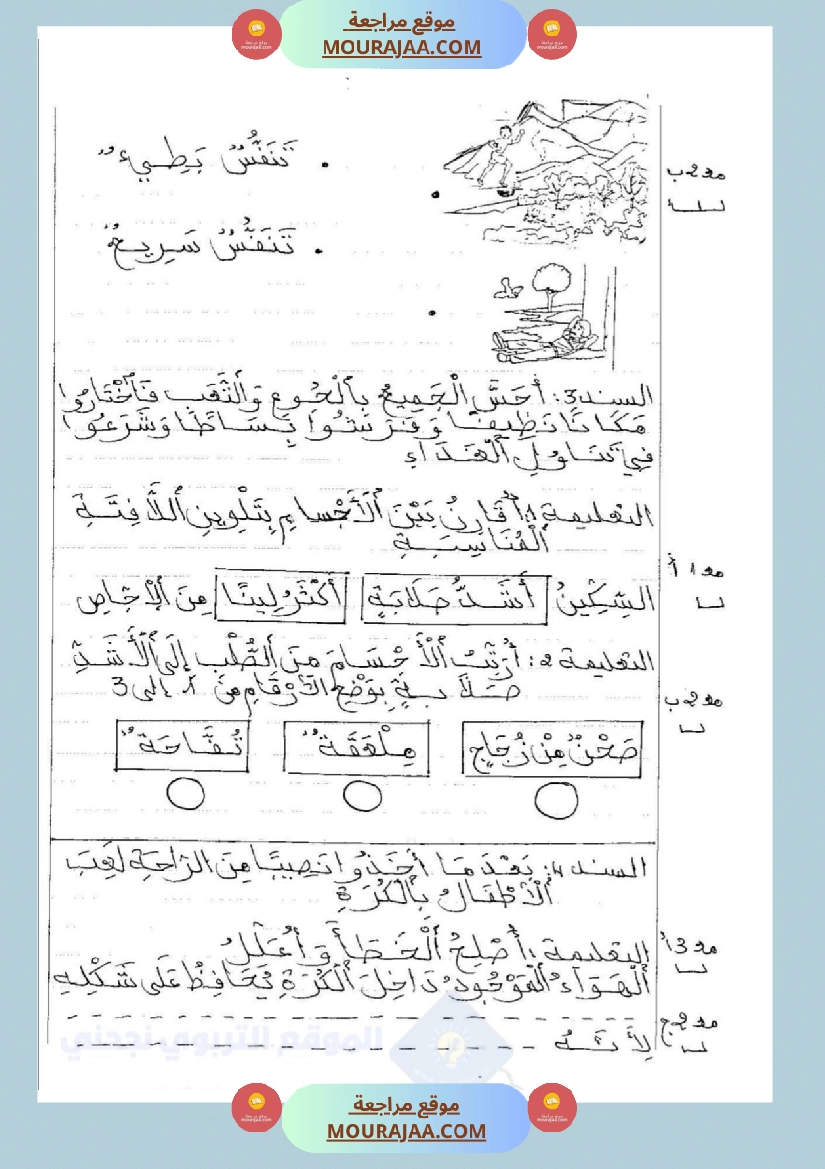 موقع مراجعة
MOURAJAA.COM
مد2ب
تَنَفُّسٌ بَطِيءٌ
تَنَفُّسٌ سَرِيعٌ
السند3: أَحَسَّ الْجَمِيعُ بِالْجُوعِ وَالتَّعَبِ فَاخْتَارُوا
مَكَانًا نَظِيفًا وَفَرَشُوا بِسَاطًا وَشَرَعُوا
فِي تَنَاوُلِ الْغَدَاءِ
التعليمة 1: أُقَارِنُ بَيْنَ الْأَجْسَامِ بِتَلْوِينِ اللَّافِتَةِ
الْمُنَاسِبَةِ
مد1أ
السِّكِّينُ أَشَدُّ صَلَابَةٍ أَكْثَرُ لِينًا مِنَ الْإِجَاصِ
التعليمة 2: أُرَتِّبُ الْأَجْسَامَ مِنَ الصُّلْبِ إِلَى الْأَشَدِّ
صَلَابَةٍ بِوَضْعِ الْأَرْقَامِ مِنْ 1 إلى 3
مد2ب
صَحْنٌ مِنْ زُجَاجٍ مِلْعَقَةٌ تُفَّاحَةٌ
السند4: بَعْدَمَا أَخَذُوا نَصِيبًا مِنَ الرَّاحَةِ لَعِبَ
الْأَطْفَالُ بِالْكُرَةِ
مد3أ
التعليمة 1: أُصْلِحُ الْخَطَأَ وَأُعَلِّلُ
الْهَوَاءُ الْمَوْجُودُ دَاخِلَ الْكُرَةِ يُحَافِظُ عَلَى شَكْلِهِ
مد2ج
لِأَنَّهُ
الموقع التربوي نجحني
موقع مراجعة
MOURAJAA.COM